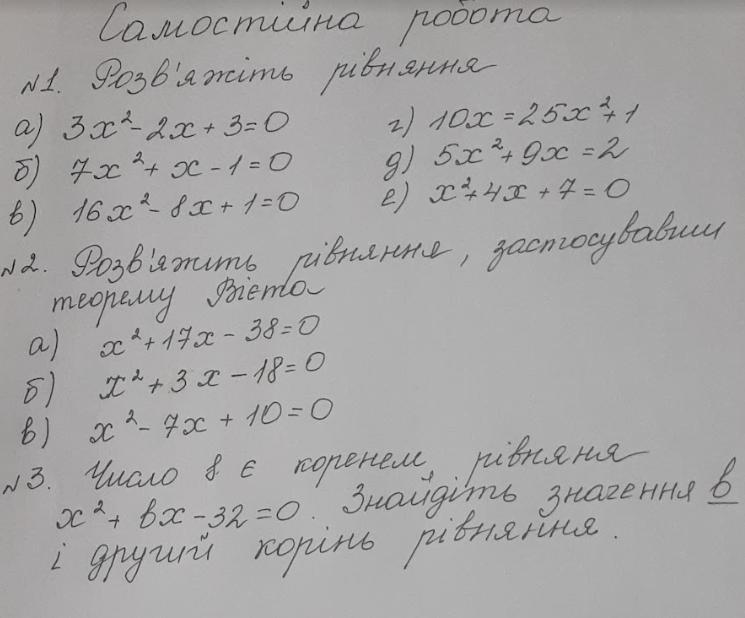 Самостійна робота
№1. Розв'яжіть рівняння
а) 3x² - 2x + 3 = 0
б) 7x² + x - 1 = 0
в) 16x² - 8x + 1 = 0
г) 10x = 25x² + 1
д) 5x² + 9x = 2
е) x² + 4x + 7 = 0
№2. Розв'яжить рівняння, застосувавши
теорему Вієта
а) x² + 17x - 38 = 0
б) x² + 3x - 18 = 0
в) x² - 7x + 10 = 0
№3. Число 8 є коренем рівняня
x² + вx - 32 = 0. Знайдіть значення в
і другий корінь рівняння.